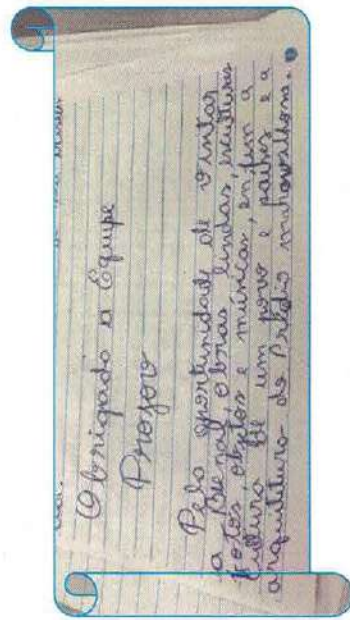 Obrigado a Equipe
Projovo
Pela oportunidade de visitar
a Bienal, obras lindas, esculturas
fotos, objetos e músicas, enfim a
cultura de um povo e países e a
arquitetura do Prédio maravilhosa.